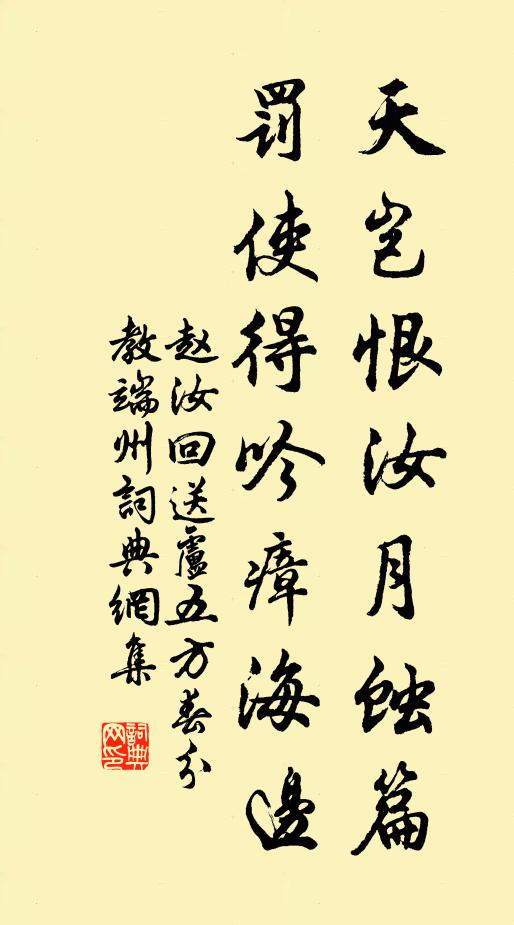 天岂恨汝月蚀篇
罰使得吟瘴海邊
赵汝回送盧五方春分
教端州詞典網集
詞典网印